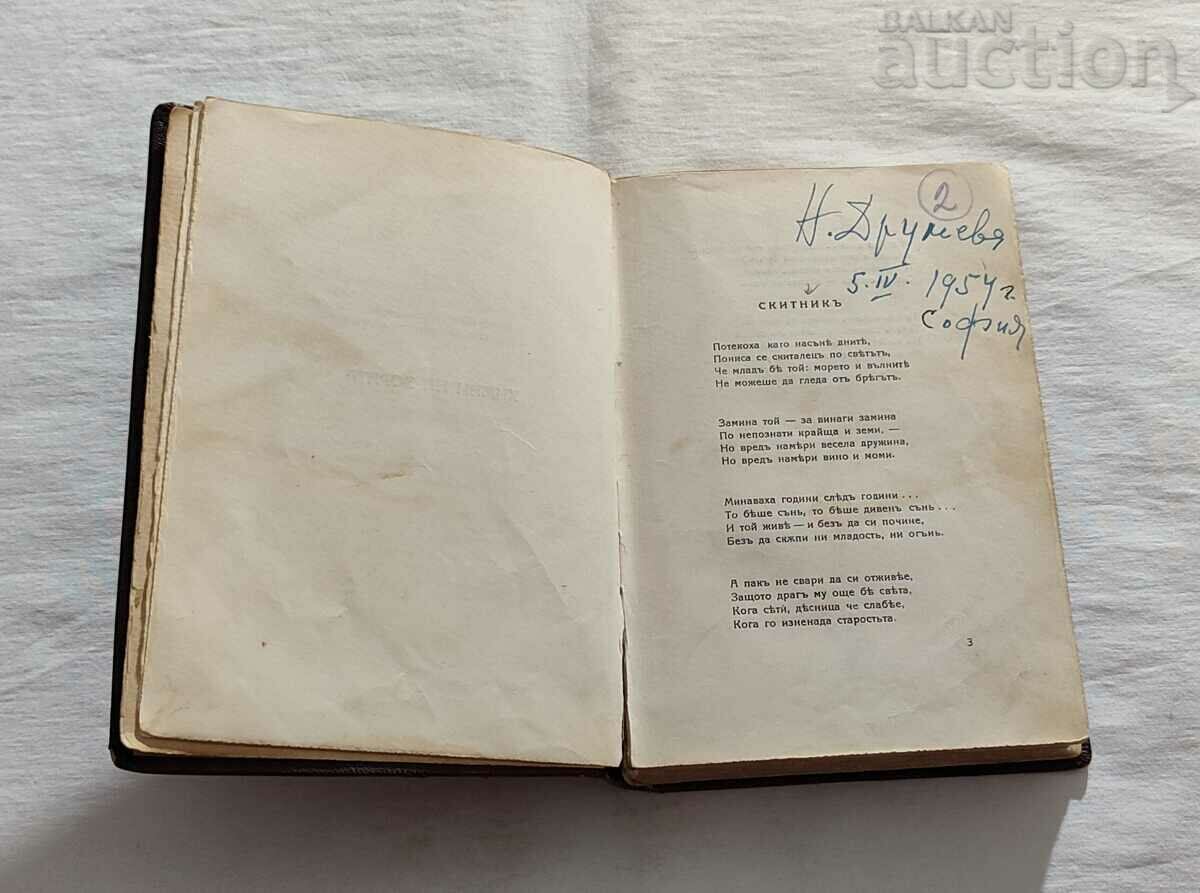 BALKAN
auction
2
Н. Друмева
5. IV. 1954 г.
София
СКИТНИКЪ
Потекоха като насънѣ днитѣ,
Пониса се скиталецъ по свѣтътъ,
Че младъ бѣ той: морето и вълнитѣ
Не можеше да гледа отъ брѣгътъ.
Замина той — за винаги замина
По непознати крайща и земи, —
Но вредъ намѣри весела дружина,
Но вредъ намѣри вино и моми.
Минаваха години слѣдъ години . . .
То бѣше сънь, то бѣше дивенъ сънь . . .
И той живѣ — и безъ да си почине,
Безъ да скѫпи ни младость, ни огънь.
А пакъ не свари да си отживѣе,
Защото драгъ му още бѣ свѣта,
Кога сѣти, дѣсница че слабѣе,
Кога го изненада старостьта.
3